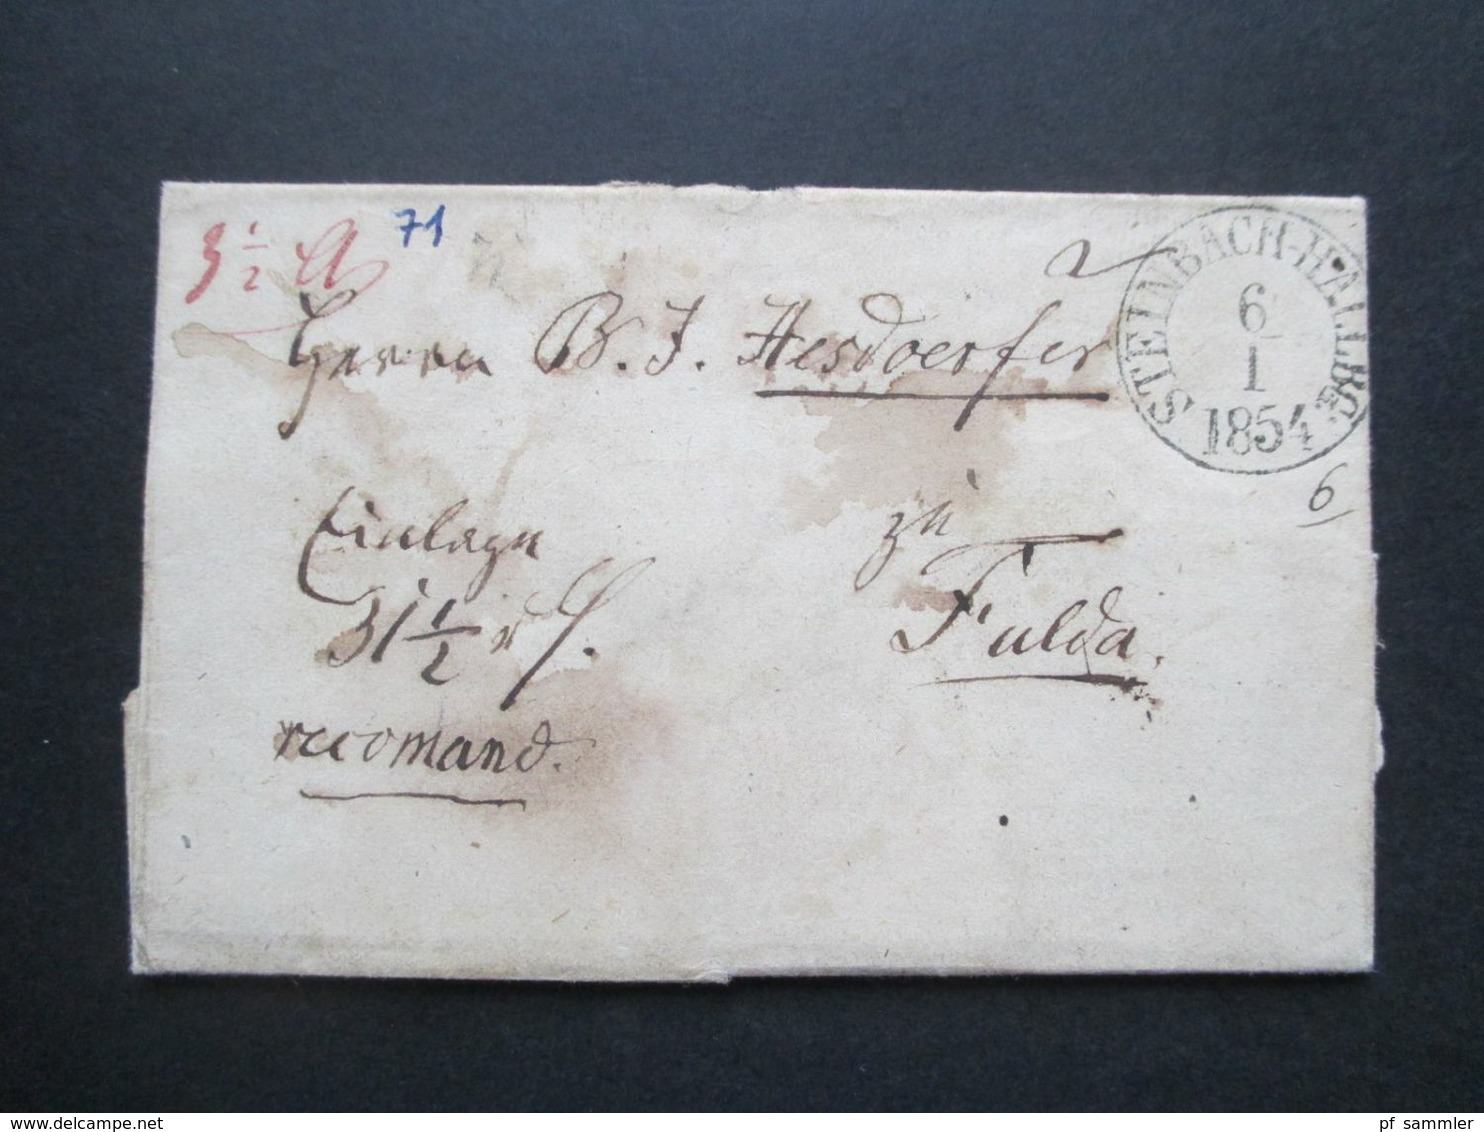 3 1/2
71
Herrn B. J. Hesdoerfer
STEINBACH-HALLBG.
6
1
1854
6
Einlage
31 1/2
recomand.
zu
Fulda.
www.delcampe.net
pf_sammler